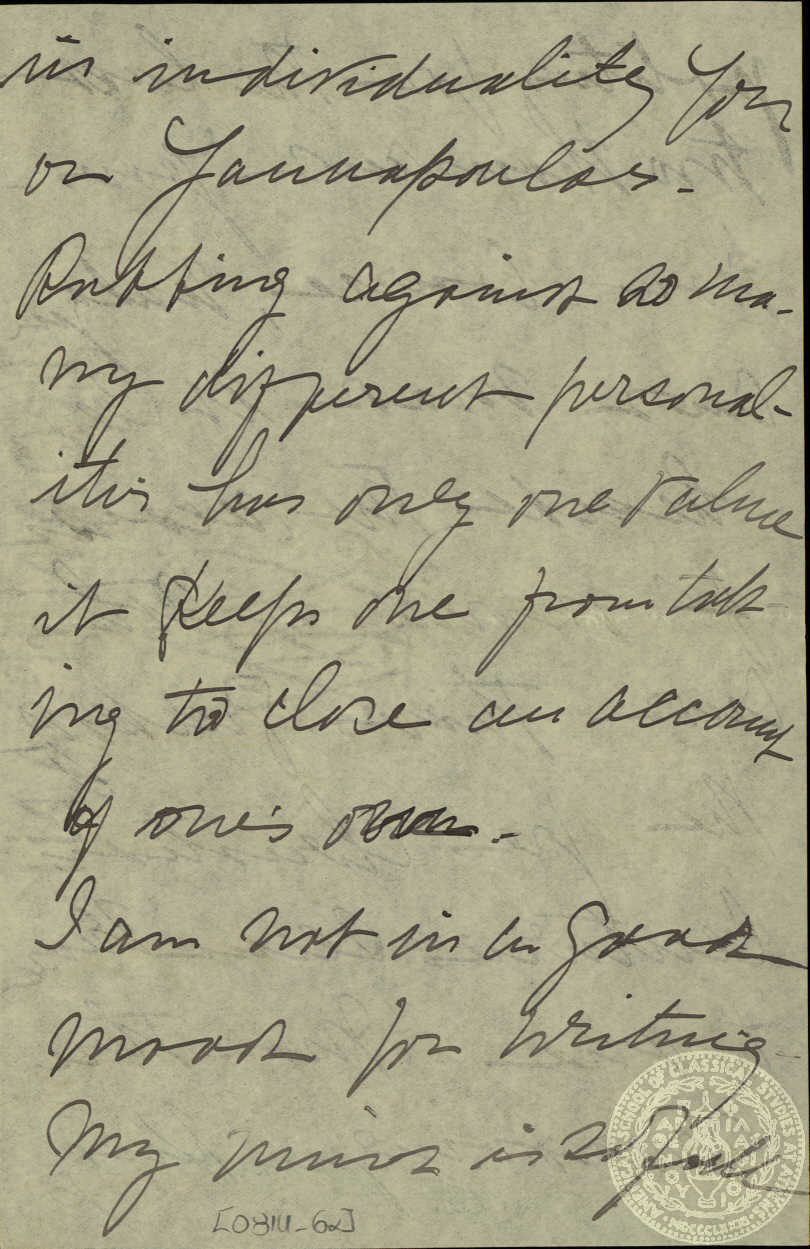 in individuality for
or Yannapoulos -
Rubbing against so ma-
ny different personal-
ities has only one value
it keeps one from tak
ing to close an account
of one's own. -
I am not in a good
mood for writing
My mind is so full
[0814-62]
AMERICAN SCHOOL OF CLASSICAL STUDIES AT ATHENS
MDCCCLXXXI